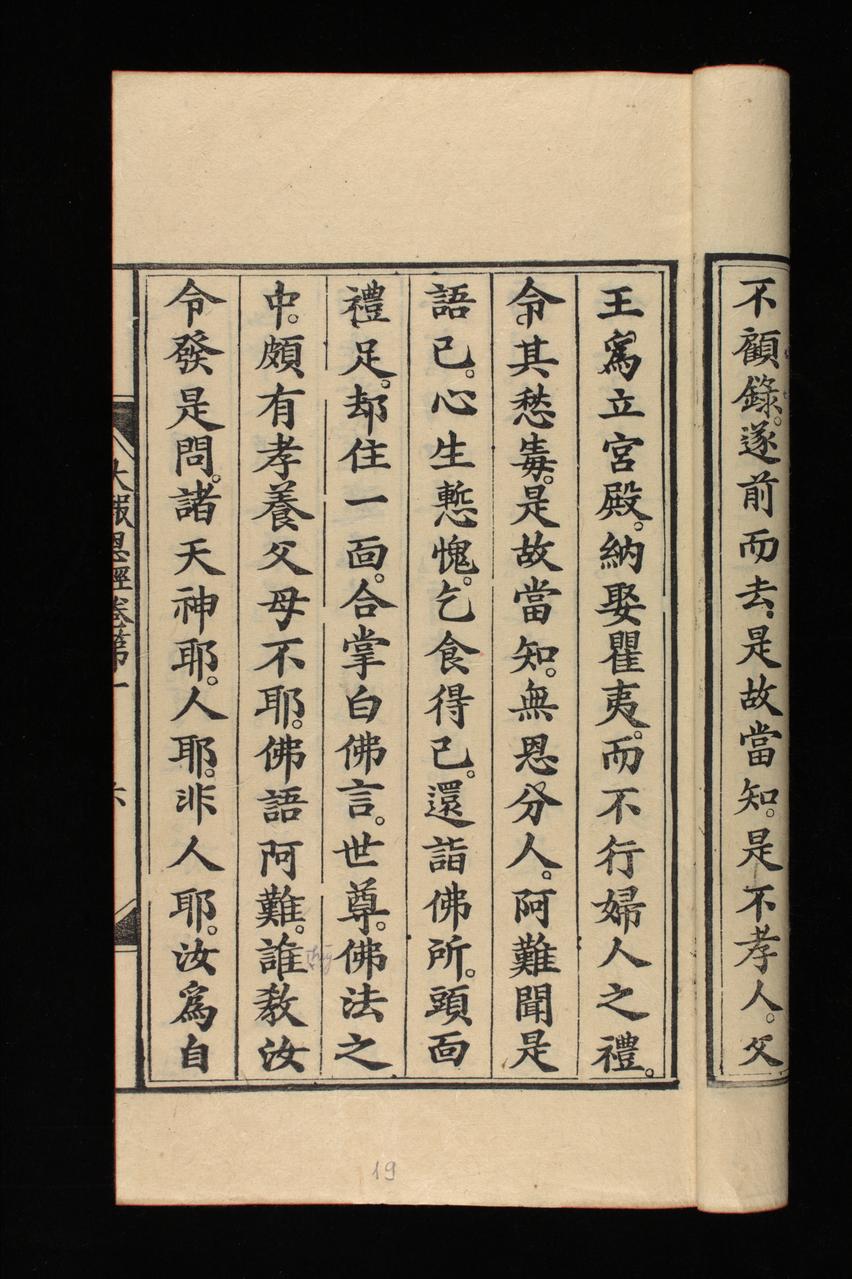 不顧錄。遂前而去。是故當知。是不孝人。父
王爲立宮殿。納娶瞿夷。而不行婦人之禮。
令其愁毒。是故當知。無恩分人。阿難聞是
語已。心生慙愧。乞食得已。還詣佛所。頭面
禮足。却住一面。合掌白佛言。世尊。佛法之
中。頗有孝養父母不耶。佛語阿難。誰教汝
令發是問。諸天神耶。人耶。非人耶。汝爲自
大報恩經卷第一 六
19